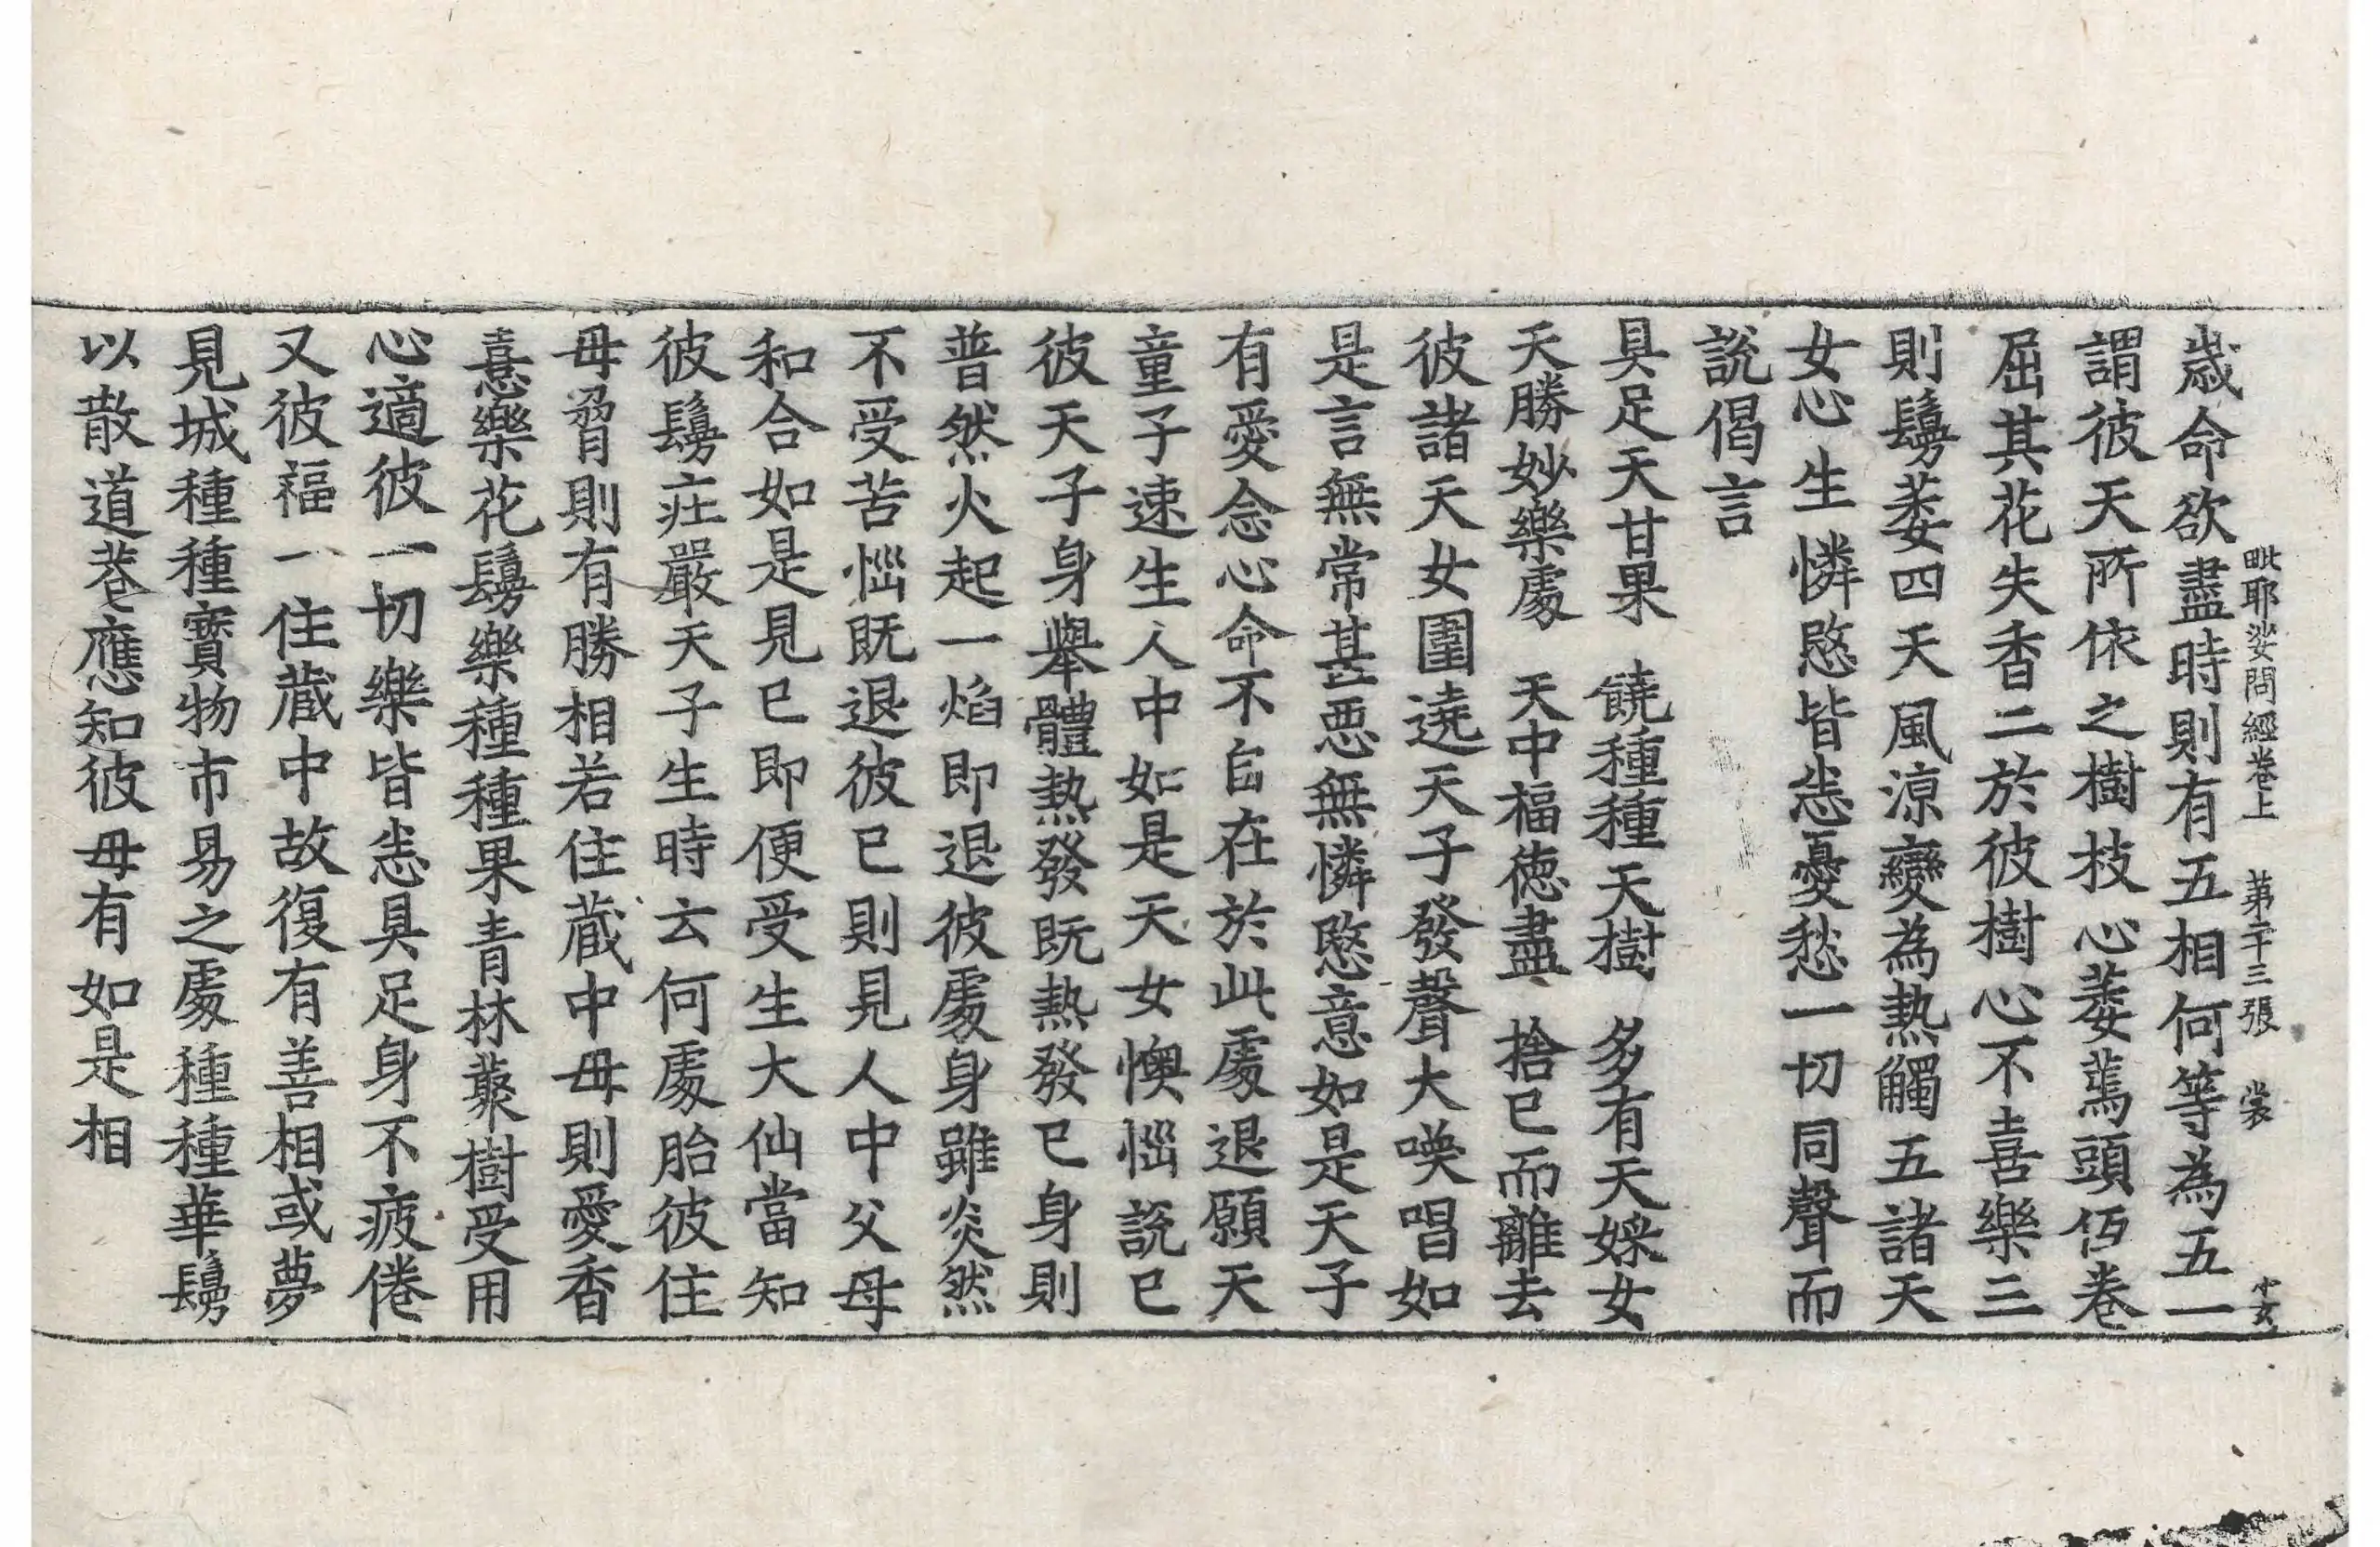 毗耶娑問經卷上　第二十三張　裳　小女
歲命欲盡時則有五相何等為五一
謂彼天所依之樹枝心萎蔫頭低卷
屈其花失香二於彼樹心不喜樂三
則鬘萎四天風涼變為熱觸五諸天
女心生憐愍皆悉憂愁一切同聲而
說偈言
具足天甘果　饒種種天樹　多有天婇女
天勝妙樂處　天中福德盡　捨已而離去
彼諸天女圍遶天子發聲大噗唱如
是言無常甚惡無憐愍意如是天子
有愛念心命不自在於此處退願天
童子速生人中如是天女懊惱說已
彼天子身舉體熱發既熱發已身則
普然火起一焰即退彼處身雖炎然
不受苦惱既退彼已則見人中父母
和合如是見已即便受生大仙當知
彼鬘莊嚴天子生時云何處胎彼住
母脅則有勝相若住藏中母則愛香
憙樂花鬘樂種種果青林藂樹受用
心適彼一切樂皆悉具足身不疲倦
又彼福一住藏中故復有善相或夢
見城種種寶物市易之處種種華鬘
以散道巷應知彼母有如是相